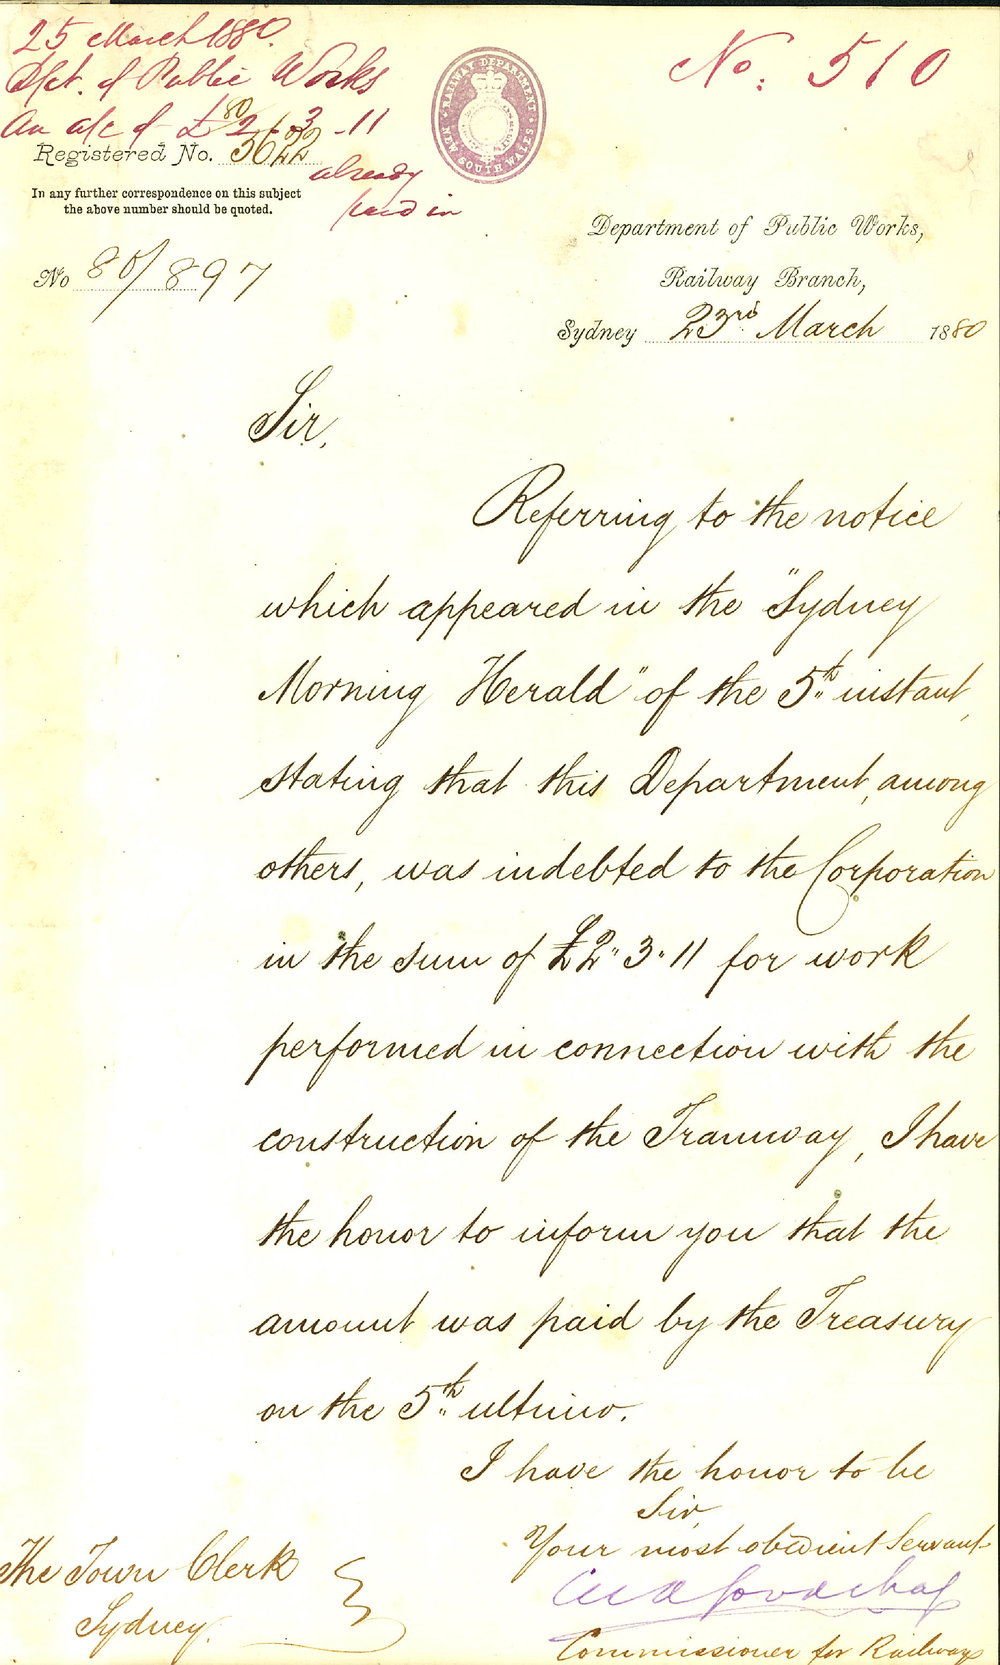 25 March 1880.
Dpt. of Public Works
An a/c of £2-3-11
already
paid in
No: 510
RAILWAY DEPARTMENT
NEW SOUTH WALES
Registered No. 80/3622
In any further correspondence on this subject
the above number should be quoted.
No 80/897
Department of Public Works,
Railway Branch,
Sydney 23rd March 1880
Sir,
Referring to the notice
which appeared in the "Sydney
Morning Herald" of the 5th instant,
stating that this Department, among
others, was indebted to the Corporation
in the sum of £2"3"11 for work
performed in connection with the
construction of the Tramway, I have
the honor to inform you that the
amount was paid by the Treasury
on the 5th ultimo.
I have the honor to be
Sir,
Your most obedient Servant
Commissioner for Railways
The Town Clerk
Sydney.